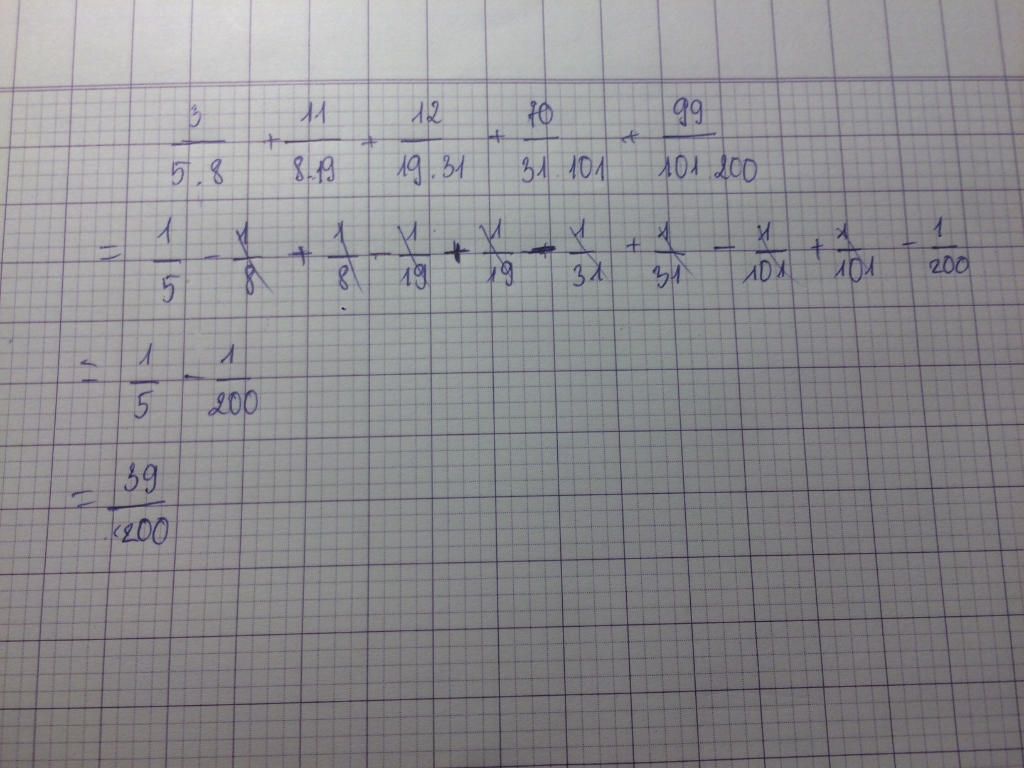 3/(5.8) + 11/(8.19) + 12/(19.31) + 70/(31.101) + 99/(101.200)
= 1/5 - 1/8 + 1/8 - 1/19 + 1/19 - 1/31 + 1/31 - 1/101 + 1/101 - 1/200
= 1/5 - 1/200
= 39/200